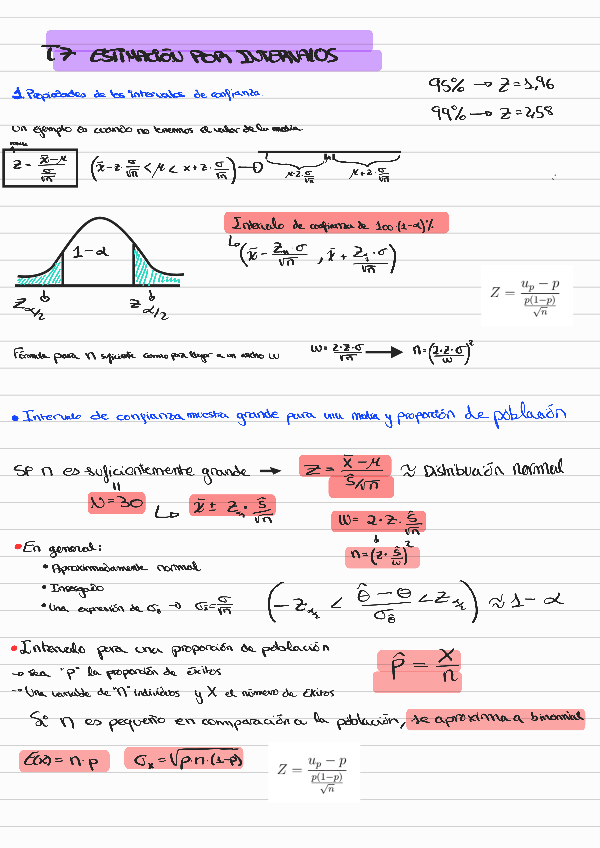 T7 ESTIMACIÓN POR INTERVALOS
95% → Z = 1,96
99% → Z = 2,58
1 Propiedades de los intervalos de confianza.
Un ejemplo es cuando no tenemos el valor de la media.
Z = (x̄ - μ) / (σ/√n) (x̄ - z · σ/√n < μ < x + z · σ/√n) →
μ - z · σ/√n μ + z · σ/√n
Intervalo de confianza de 100·(1-α)%
1 - α
(x̄ - Z · σ/√n , x̄ + Z · σ/√n)
Z = (u_p - p) / (p(1-p)/√n)
Z α/2 Z α/2
Fórmula para n suficiente como para llegar a un ancho w
w = 2·z·σ/√n → n = (2·z·σ/w)²
• Intervalo de confianza muestra grande para una media y proporción de población
Si n es suficientemente grande → Z = (x̄ - μ) / (ŝ/√n) ≈ Distribución normal
N = 30 x̄ ± Z · ŝ/√n
w = 2·z·ŝ/√n
n = (z·ŝ/w)²
• En general:
• Aproximadamente normal
• Insesgado
• Una expresión de σ → σ = σ/√n
(-Z α/2 < (θ̂ - θ)/σ_θ̂ < Z α/2) ≈ 1 - α
• Intervalo para una proporción de población
→ sea "p" la proporción de éxitos
p̂ = X/n
→ Una variable de "n" individuos y X el número de éxitos
Si n es pequeño en comparación a la población, se aproxima a binomial
E(x) = n·p σx = √p·n·(1-p)
Z = (u_p - p) / (p(1-p)/√n)